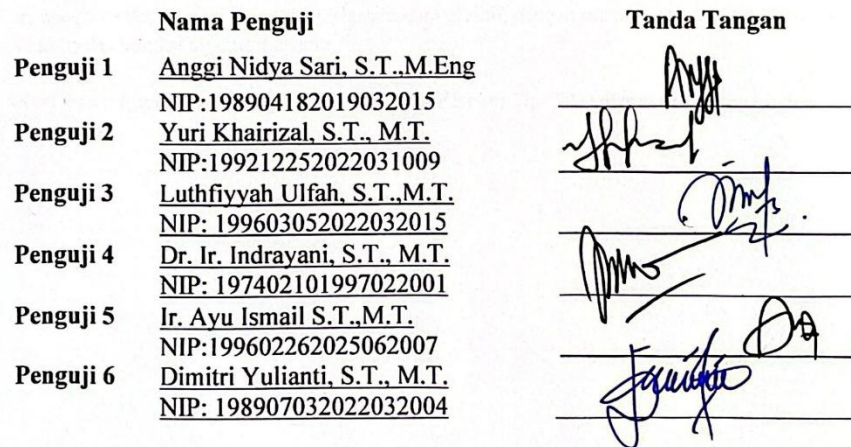 Nama Penguji Tanda Tangan
Penguji 1 Anggi Nidya Sari, S.T.,M.Eng
NIP:198904182019032015
Penguji 2 Yuri Khairizal, S.T., M.T.
NIP:199212252022031009
Penguji 3 Luthfiyyah Ulfah, S.T.,M.T.
NIP: 199603052022032015
Penguji 4 Dr. Ir. Indrayani, S.T., M.T.
NIP: 197402101997022001
Penguji 5 Ir. Ayu Ismail S.T.,M.T.
NIP:199602262025062007
Penguji 6 Dimitri Yulianti, S.T., M.T.
NIP: 198907032022032004